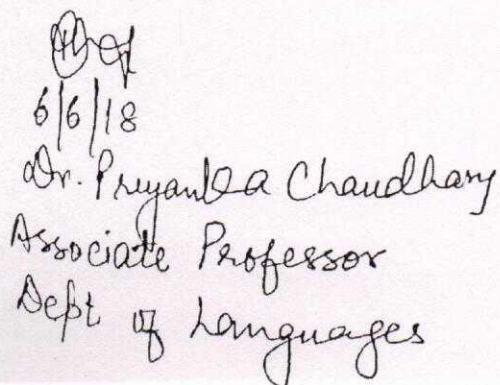 6/6/18
Dr. Priyanka Chaudhary
Associate Professor
Dept of Languages